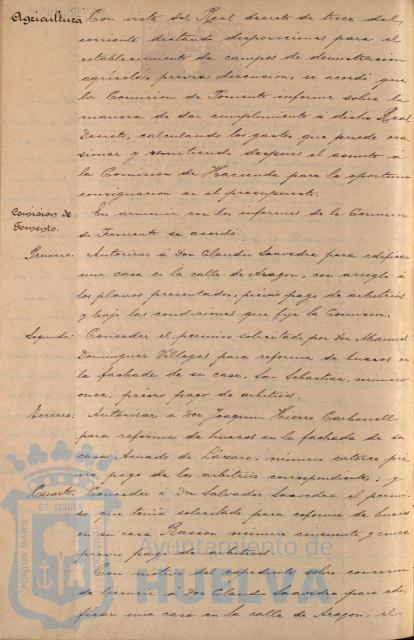 Agricultura Con vista del Real decreto de trece del
corriente dictando disposiciones para el
establecimiento de campos de demostracion
agricola, previa discusion, se acordó que
la Comision de Fomento informe sobre la
manera de dar cumplimiento á dicho Real
Decreto, calculando los gastos que puede oca-
sionar y remitiendo despues el asunto a
la Comision de Hacienda para la oportuna
consignacion en el presupuesto.
Comision de Fomento. En armonia con los informes de la Comision
de Fomento se acordó:
Primero: Autorizar á Don Claudio Saavedra para edificar
una casa en la calle de Aragon, con arreglo á
los planos presentados, previo pago de arbitrios
y bajo las condiciones que fije la Comision.
Segundo: Conceder el permiso solicitado por Don Manuel
Dominguez Villegas para reforma de huecos en
la fachada de su casa, San Sebastian, número
once, previo pago de arbitrios.
Tercero: Autorizar á Don Joaquin Hierro Carbonell
para reforma de huecos en la fachada de su
casa número catorce pre-
vio pago de los arbitrios correspondientes; y
Cuarto. Conceder á Don Salvador Saavedra el permi-
so que tenia solicitado para reforma de huecos
en su casa Rascon número cincuenta y once
previo pago de arbitrios.
Con motivo del expediente sobre concesion
de licencia á Don Claudio Saavedra para edi-
ficar una casa en la calle de Aragon, el
PORTUS MARIS ET TERRÆ
Ayuntamiento de
HUELVA